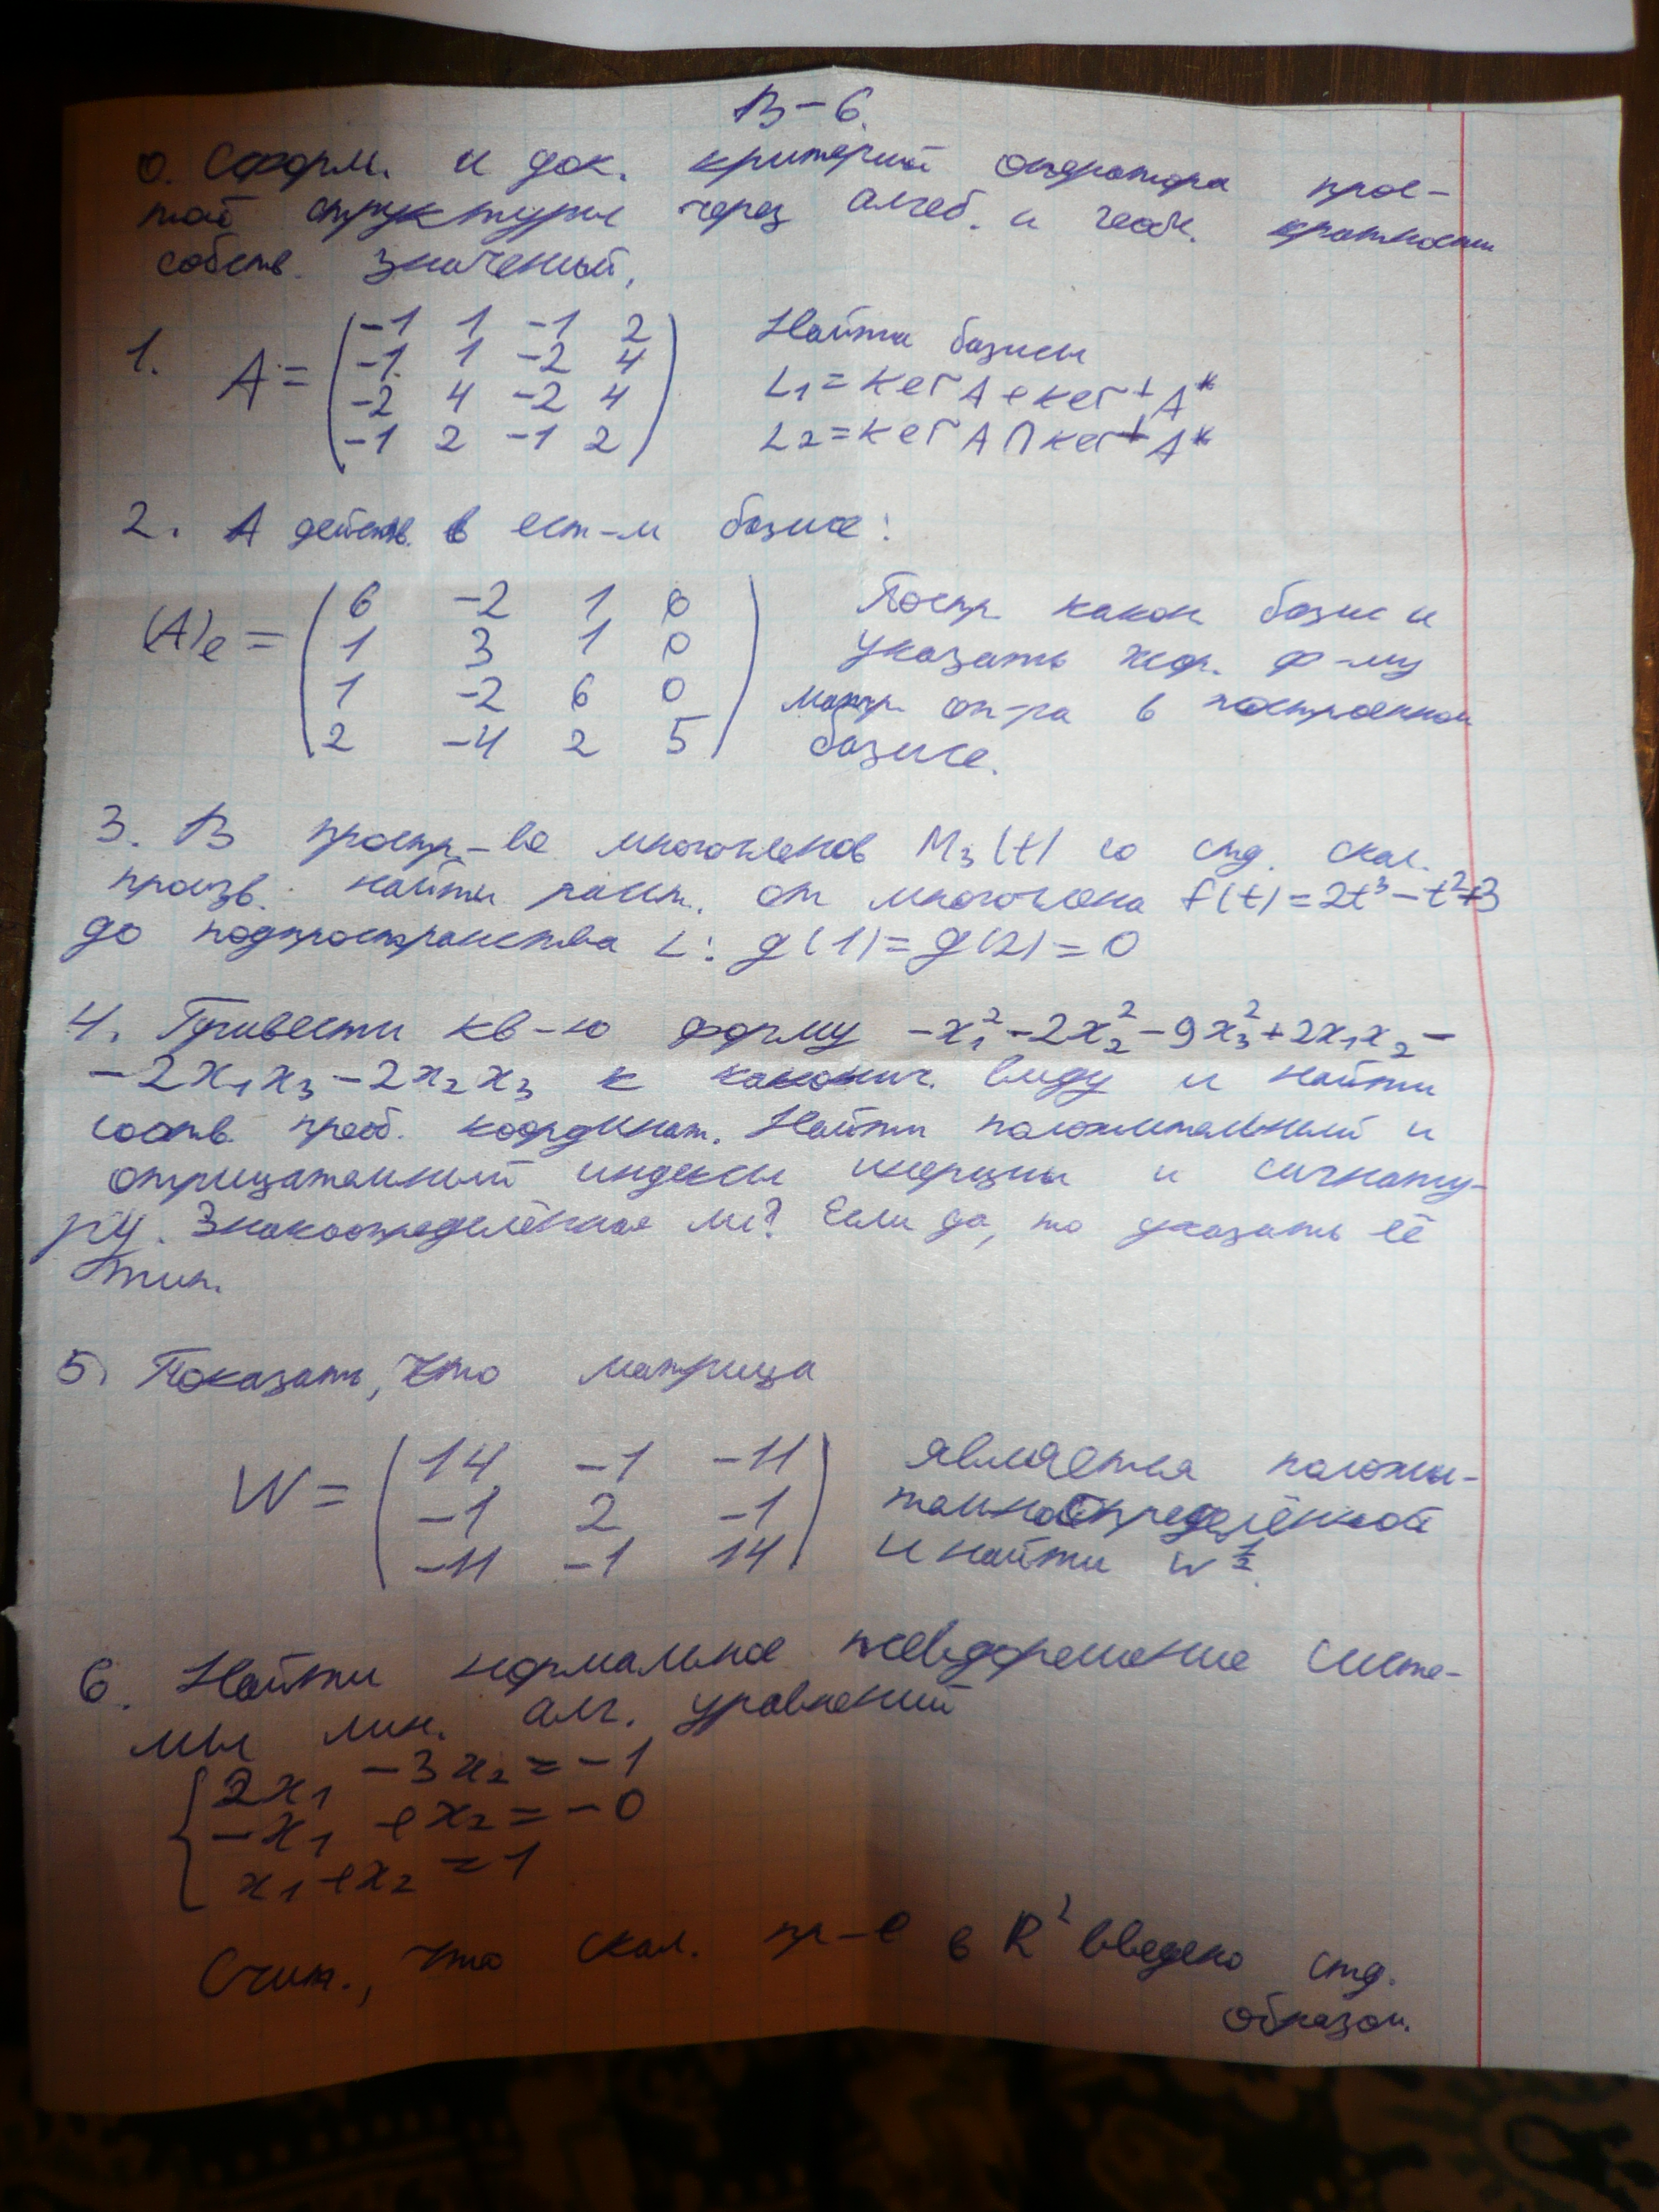 В-6.
0. Сформ. и док. критерий оператора прос-
той структуры через алгеб. и геом. кратности
собств. значений.
1. A = (-1 1 -1 2
-1 1 -2 4
-2 4 -2 4
-1 2 -1 2)
Найти базисы
L₁ = ker A + ker⊥ A*
L₂ = ker A ∩ ker⊥ A*
2. A действ. в ест-м базисе:
(A)e = (6 -2 1 0
1 3 1 0
1 -2 6 0
2 -4 2 5)
Постр. канон. базис и
указать жор. ф-му
матр. оп-ра в построенном
базисе.
3. В простр-ве многочленов M₃(t) со стд. скал.
произв. найти расст. от многочлена f(t) = 2t³ - t² + 3
до подпространства L: g(1) = g(2) = 0
4. Привести кв-ю форму -x₁² - 2x₂² - 9x₃² + 2x₁x₂ -
- 2x₁x₃ - 2x₂x₃ к канонич. виду и найти
соотв. преоб. координат. Найти положительный и
отрицательный индексы инерции и сигнату-
ру. Знакоопределённая ли? Если да, то указать её
тип.
5. Показать, что матрица
W = (14 -1 -11
-1 2 -1
-11 -1 14)
является положи-
тельноопределённой
и найти W^½.
6. Найти нормальное псевдорешение систе-
мы лин. алг. уравнений
{2x₁ - 3x₂ = -1
-x₁ + x₂ = -0
x₁ + x₂ = 1
Счит., что скал. пр-е в R² введено стд.
образом.